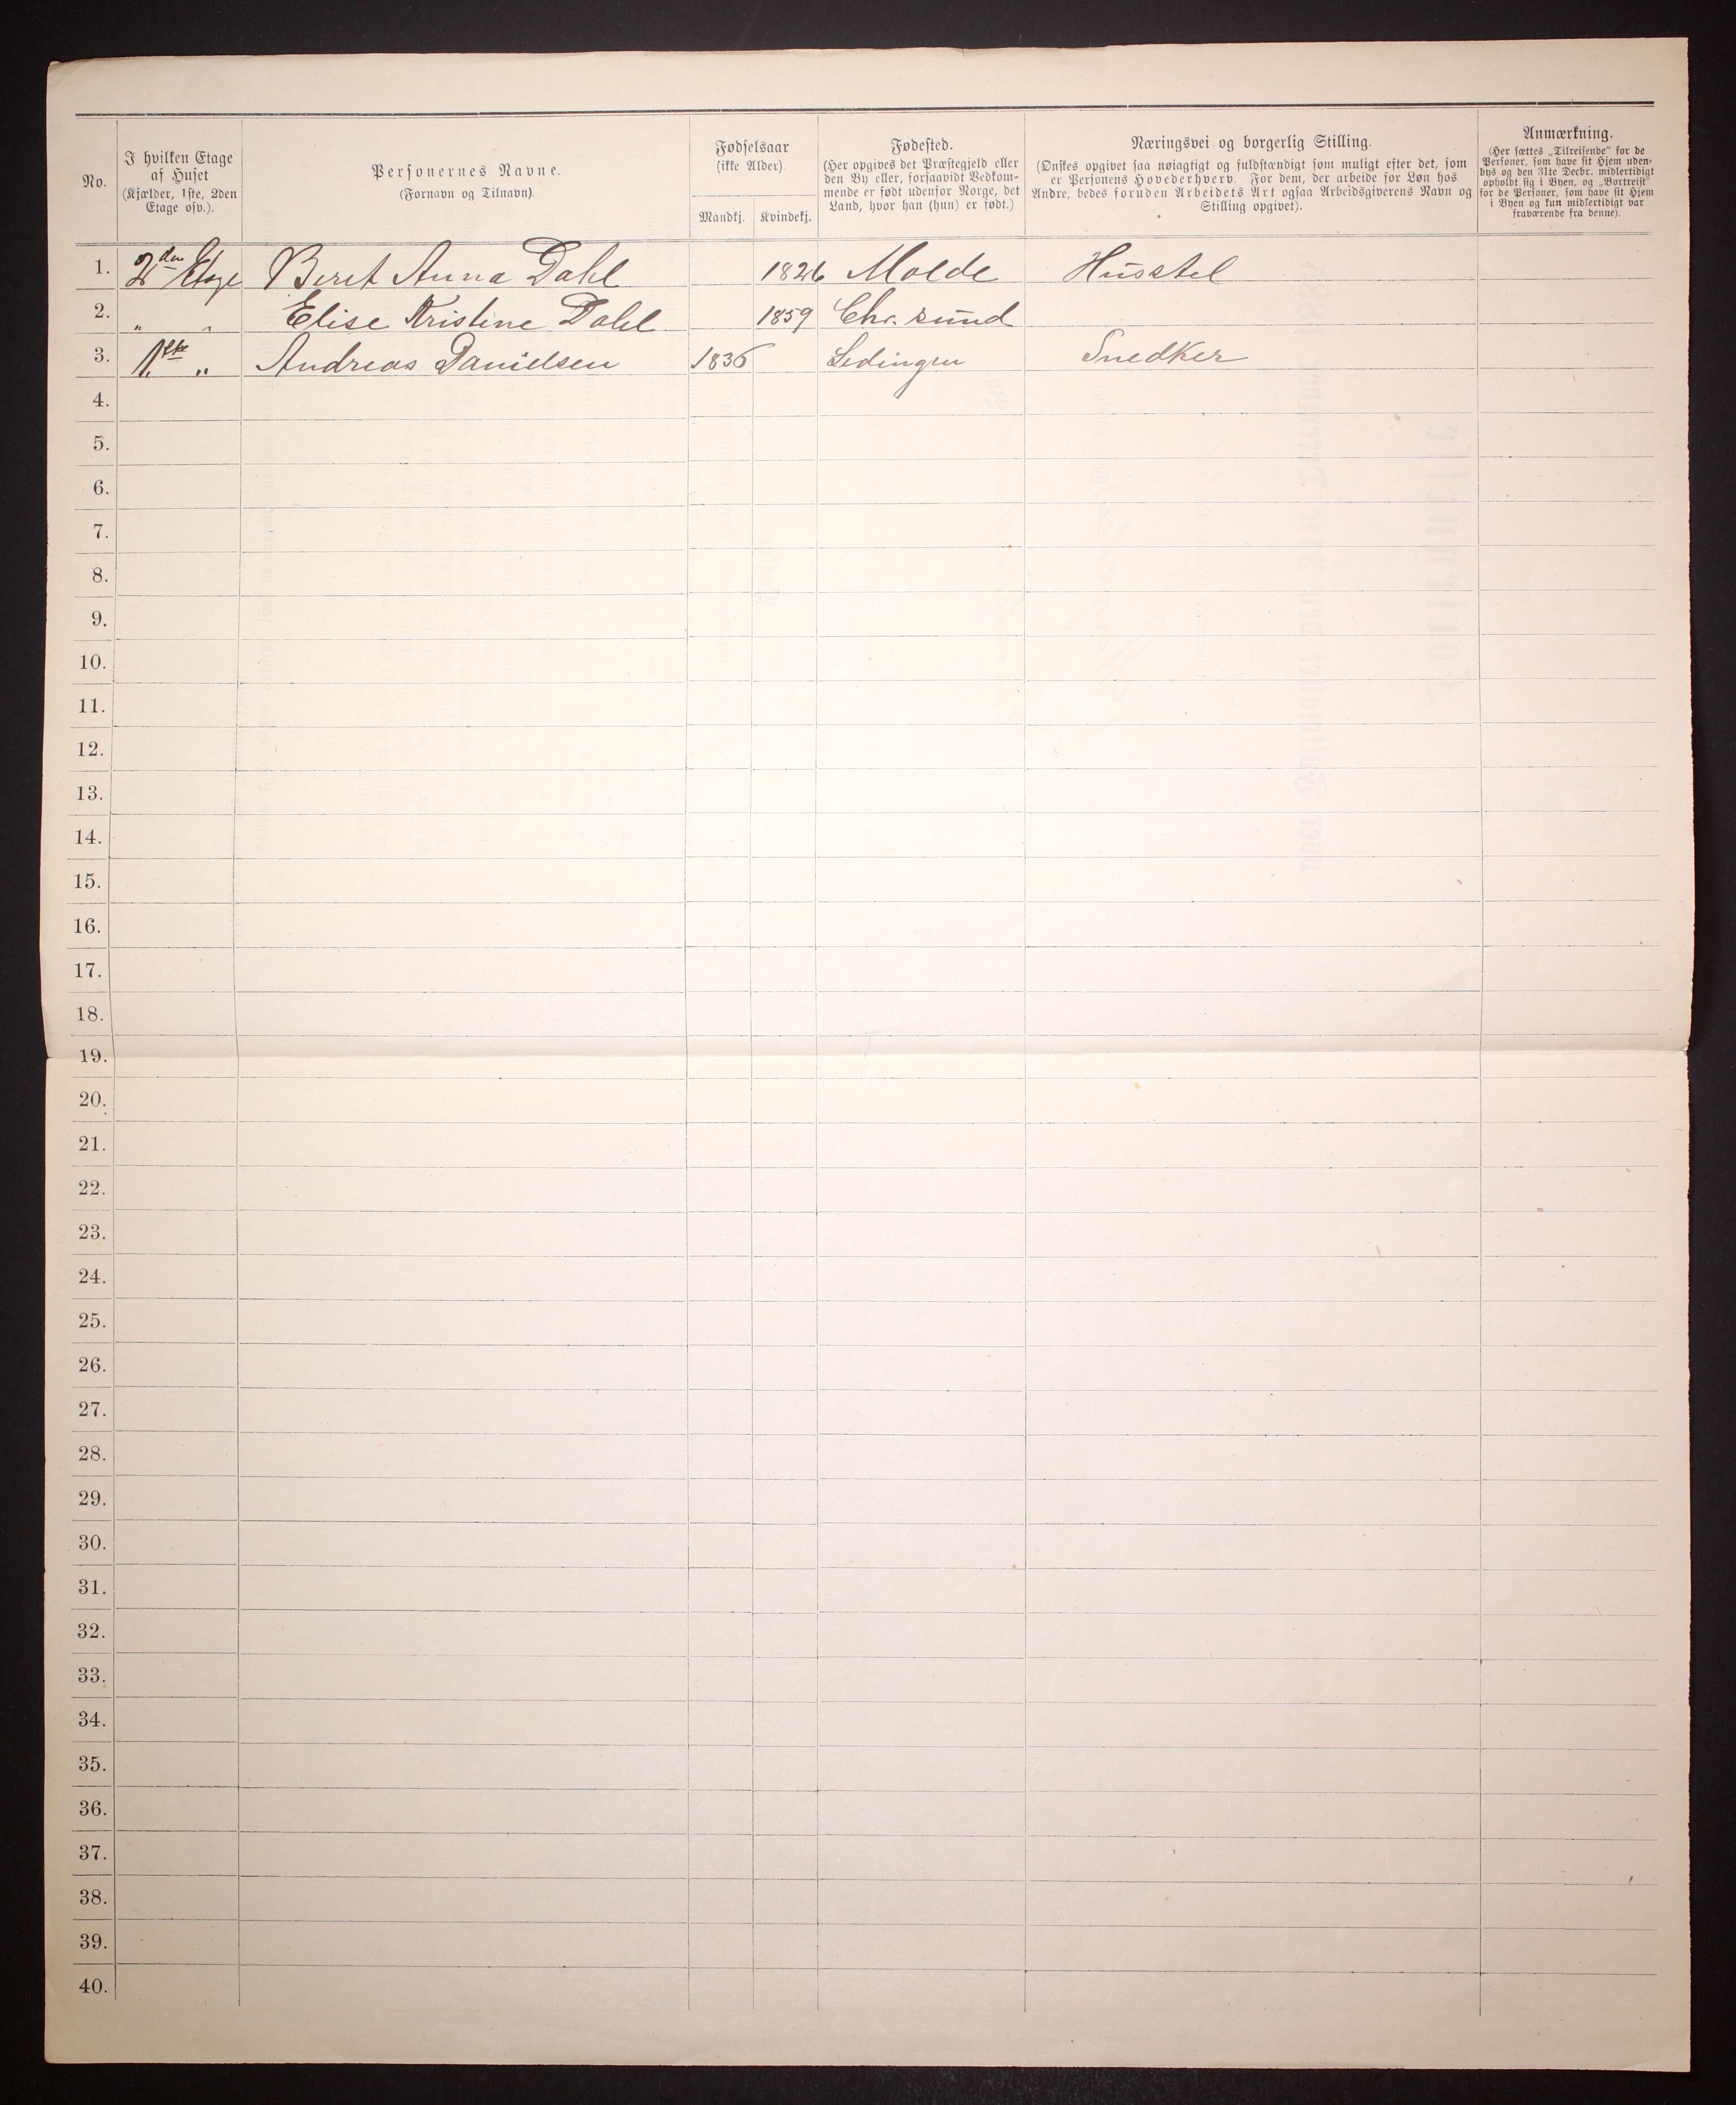 No.
I hvilken Etage
af Huset
(Kjælder, 1ste, 2den
Etage osv.).
Personernes Navne.
(Fornavn og Tilnavn).
Fødselsaar
(ikke Alder).
Mandkj. Kvindekj.
Fødested.
(Her opgives det Præstegjeld eller
den By eller, forsaavidt Vedkom-
mende er født udenfor Norge, det
Land, hvor han (hun) er født.)
Næringsvei og borgerlig Stilling.
(Ønskes opgivet saa nøiagtigt og fuldstændigt som muligt efter det, som
er Personens Hovederhverv. For dem, der arbeide for Løn hos
Andre, bedes foruden Arbeidets Art ogsaa Arbeidsgiverens Navn og
Stilling opgivet).
Anmærkning.
(Her sættes „Tilreisende“ for de
Personer, som have sit Hjem uden-
bys og den 31te Decbr. midlertidigt
opholdt sig i Byen, og „Bortreist“
for de Personer, som have sit Hjem
i Byen og kun midlertidigt var
fraværende fra denne).
1. 2den Etage Beret Anna Dahl 1826 Molde Husstel
2. " " Elise Kristine Dahl 1859 Chr. sund
3. 1ste " Andreas Danielsen 1836 Lødingen Snedker
4.
5.
6.
7.
8.
9.
10.
11.
12.
13.
14.
15.
16.
17.
18.
19.
20.
21.
22.
23.
24.
25.
26.
27.
28.
29.
30.
31.
32.
33.
34.
35.
36.
37.
38.
39.
40.